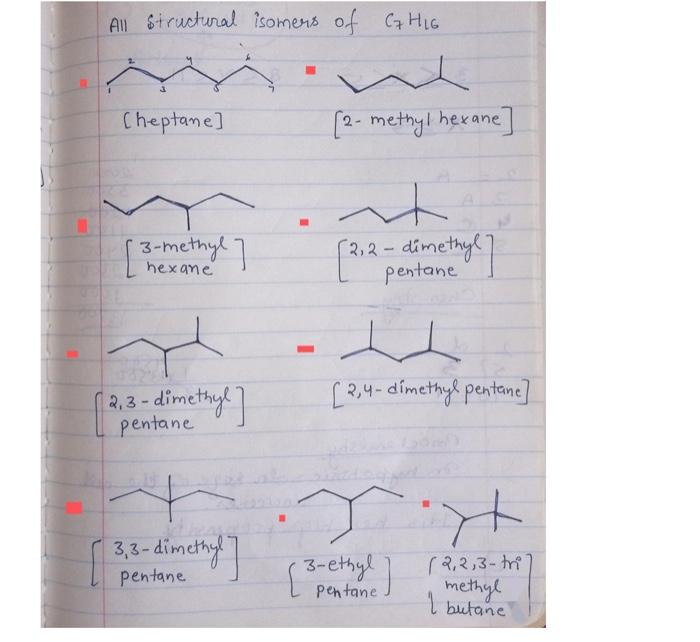 All Structural isomers of C7H16
1 2 3 4 5 6 7
[heptane]
[2- methyl hexane]
[3-methyl
hexane]
[2,2 - dimethyl
pentane]
[2,3 - dimethyl
pentane]
[2,4- dimethyl pentane]
[3,3- dimethyl
pentane]
[3-ethyl
Pentane]
[2,2,3- tri
methyl
butane]